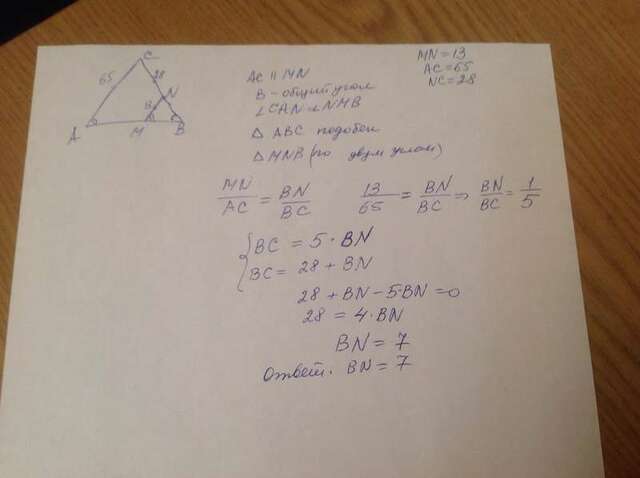 MN = 13
AC = 65
NC = 28
C
65
28
N
13
A
M
B
AC || MN
B - общий угол
∠CAN и ∠NMB
△ ABC подобен
△ MNB (по двум углам)
MN/AC = BN/BC 13/65 = BN/BC => BN/BC = 1/5
{ BC = 5 · BN
BC = 28 + BN
28 + BN - 5·BN = 0
28 = 4·BN
BN = 7
Ответ. BN = 7